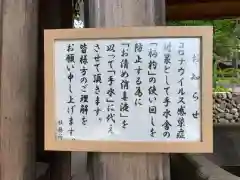 お知らせ
コロナウイルス感染症
対策として手水舎の
「柄杓」の使い回しを
防止する為に
「お清め消毒液」を
以って「手水」に代え
させて頂きます。
皆様方のご理解を
お願い申し上げます